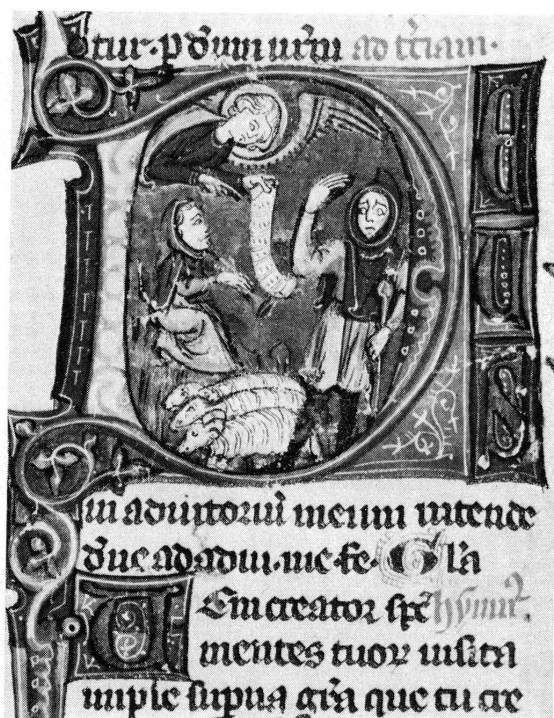 tur · p dñum nr̃m ad tc̃iam ·
D
E
U
S
in adiutoriũ meum intende
dñe ad adiu · me fe · Gl̃a
V Eni creator spc̃ hymn᷒ .
mentes tuoꝝ uisita
imple supna gr̃a que tu cre